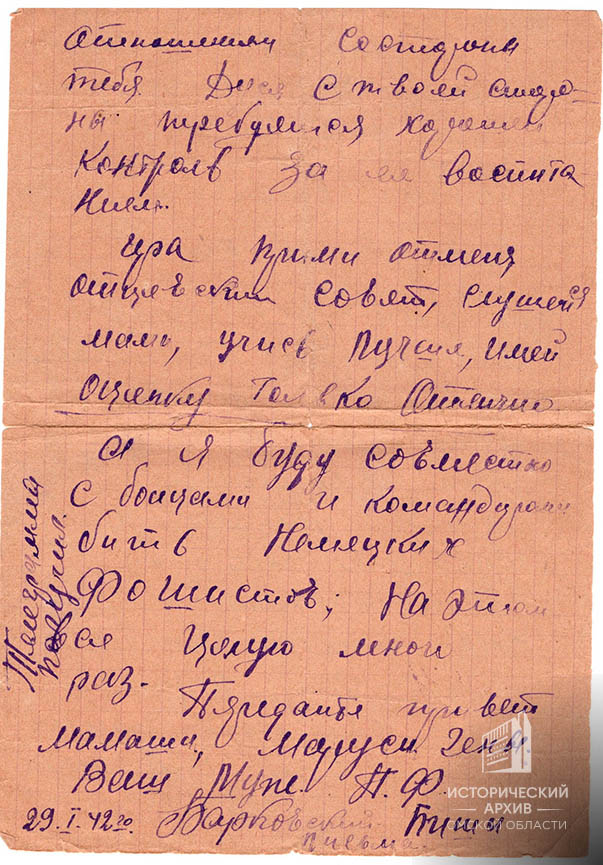 отношения состороны
тебя. Дуся с твоей сторо-
ны требуется хороший
контроль за ея воспита
нием.
Ира прими отменя
отцевский совят, слушейся
маму, учись лучше, имей
оценку только Отлично.
А я буду совместно
с бойцами и командирами
бить Немецких
Фошистов; На этом
все целую много
раз.
Пяридайте привет
мамаши, Маруси, Гена.
Ваш Муж. П.Ф.
Барковский.
29.I.42го
Пиши
письма
Телеграмма
получил.
ИСТОРИЧЕСКИЙ
АРХИВ
ОМСКОЙ ОБЛАСТИ